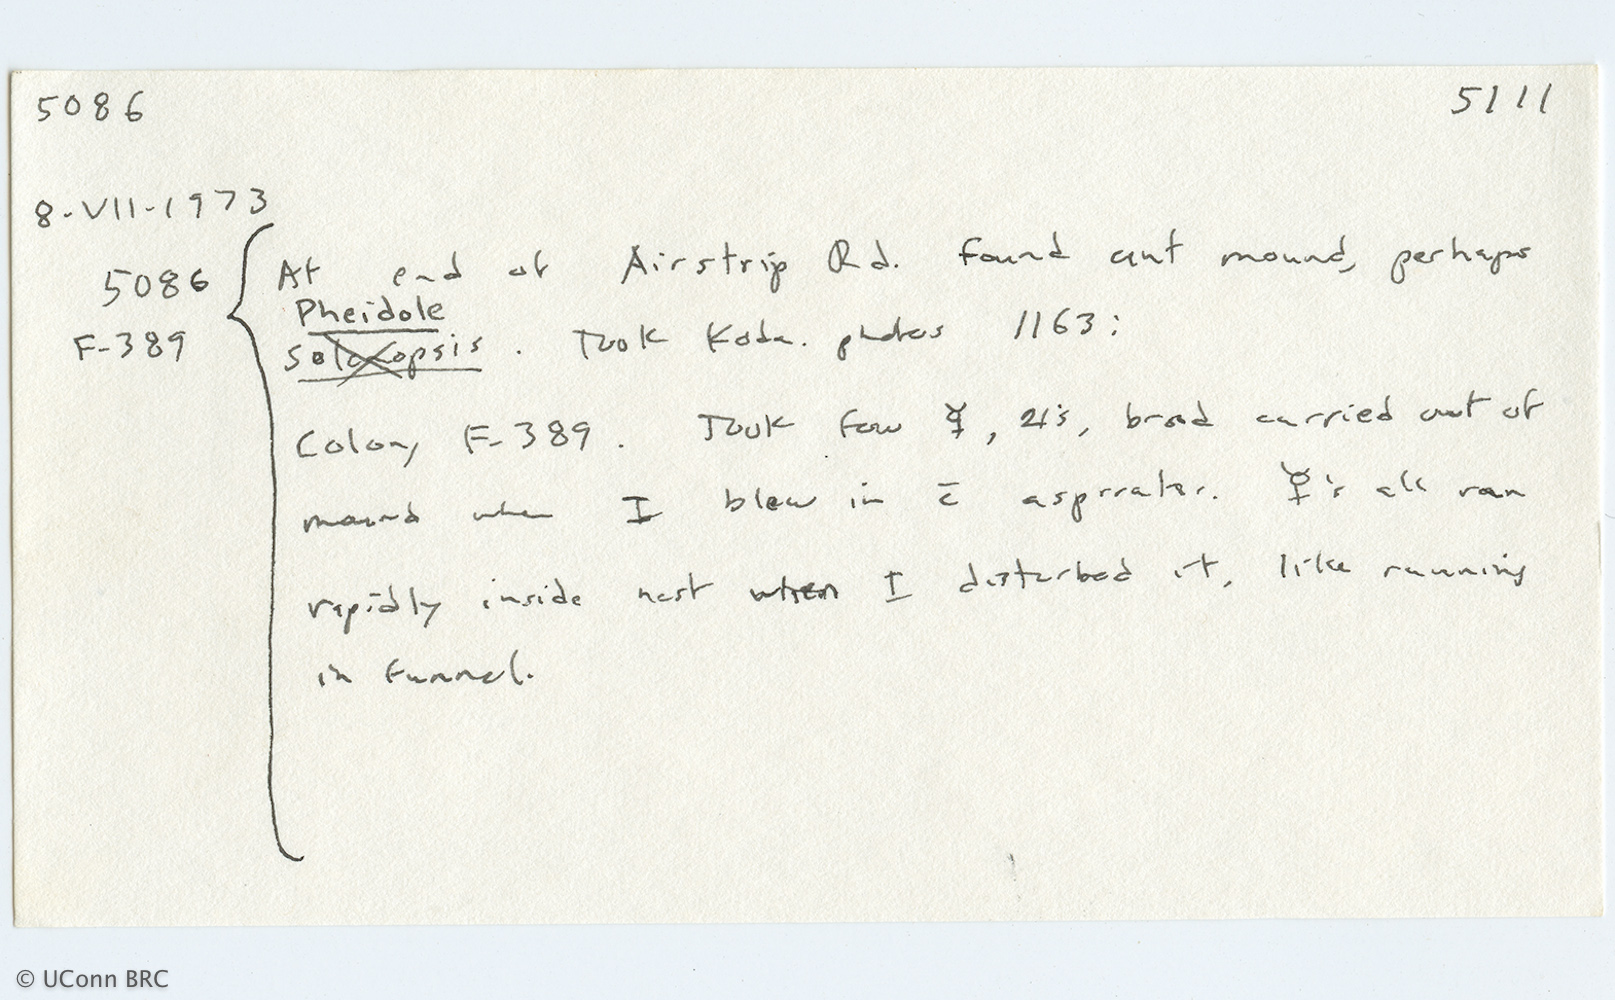 5086 5111
8-VII-1973
5086
F-389
At end of Airstrip Rd. found ant mound, perhaps
Pheidole
Solenopsis. Took Koda. photos 1163:
Colony F-389. Took few ☿, 4's, brood carried out of
mound when I blew in c̄ aspirator. ☿'s all ran
rapidly inside nest when I disturbed it, like running
in funnel.
© UConn BRC